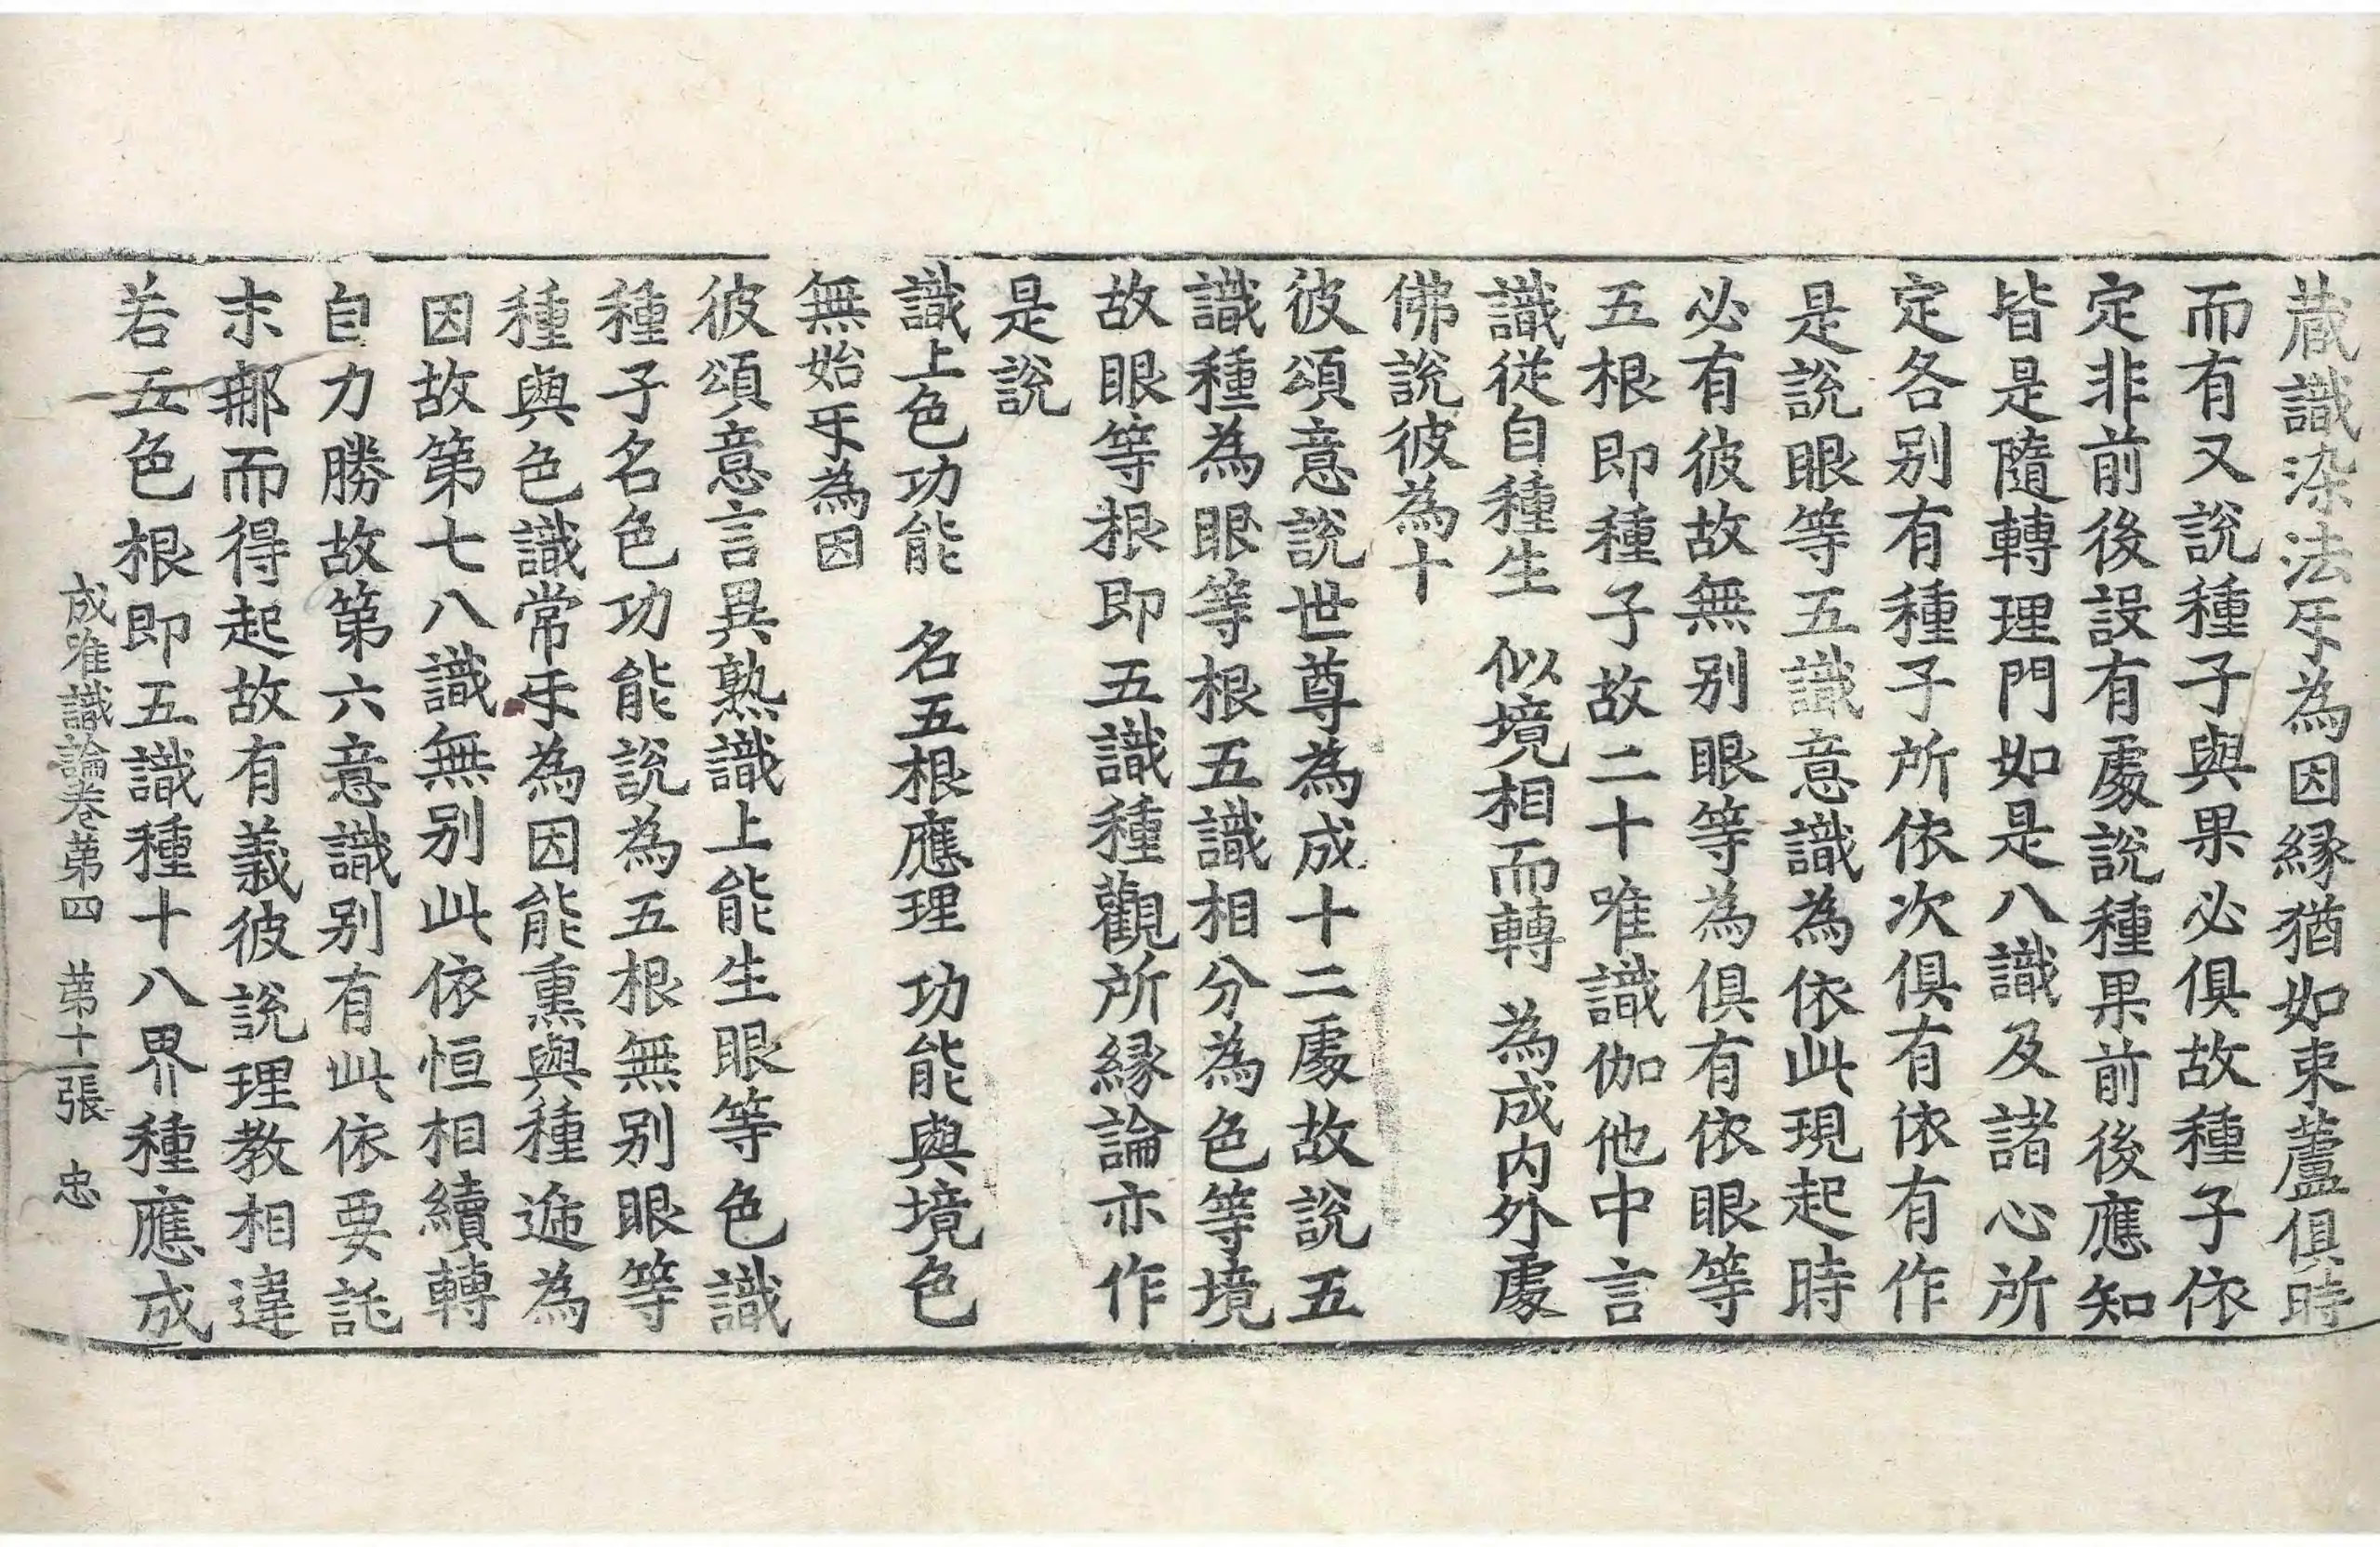 蔵識染法㸦為因縁猶如束蘆俱時
而有又說種子與果必俱故種子依
定非前後設有處說種果前後應知
皆是隨轉理門如是八識及諸心所
定各別有種子所依次俱有依有作
是說眼等五識意識為依此現起時
必有彼故無別眼等為俱有依眼等
五根即種子故二十唯識伽他中言
識從自種生　似境相而轉　為成内外處
佛說彼為十
彼頌意說世尊為成十二處故說五
識種為眼等根五識相分為色等境
故眼等根即五識種觀所縁論亦作
是說
識上色功能　名五根應理　功能與境色
無始㸦為因
彼頌意言異熟識上能生眼等色識
種子名色功能說為五根無別眼等
種與色識常㸦為因能熏與種遞為
因故第七八識無別此依恒相續轉
自力勝故第六意識別有此依要託
末那而得起故有義彼說理教相違
若五色根即五識種十八界種應成
成唯識論卷第四　第十一張　忠